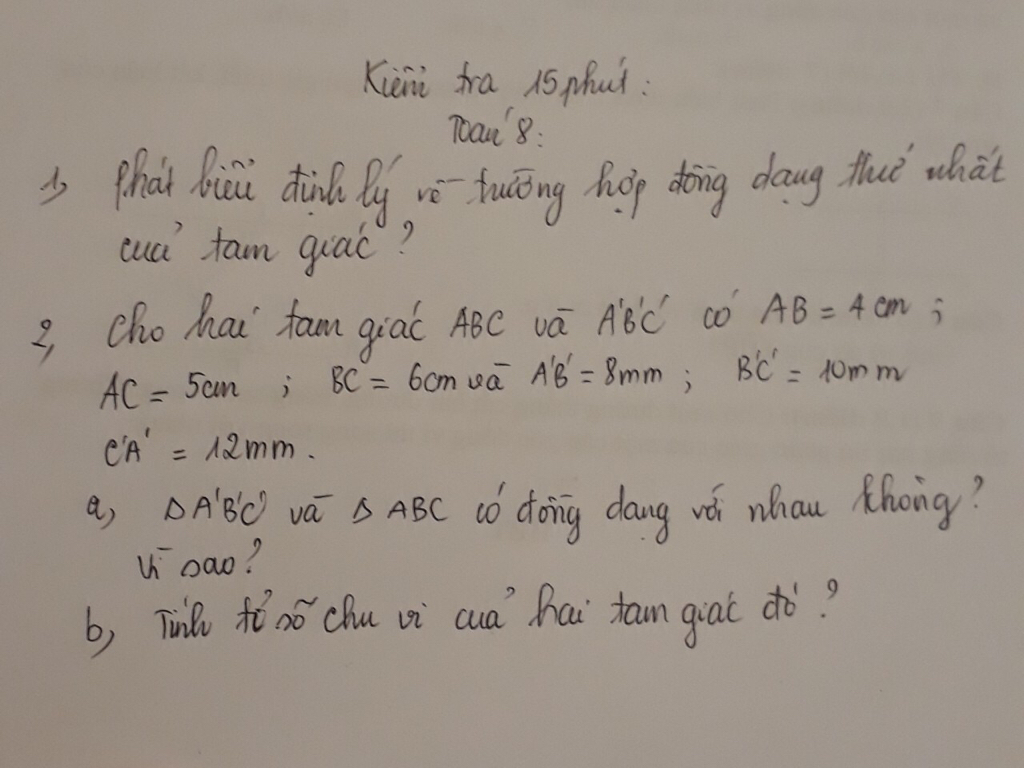 Kiểm tra 15 phút:
Toán 8:
1, Phát biểu định lý về trường hợp đồng dạng thứ nhất
của tam giác?
2, Cho hai tam giác ABC và A'B'C' có AB = 4 cm;
AC = 5cm ; BC = 6cm và A'B' = 8mm ; B'C' = 10mm
C'A' = 12mm.
a, Δ A'B'C' và Δ ABC có đồng dạng với nhau không?
Vì sao?
b, Tính tỉ số chu vi của hai tam giác đó?